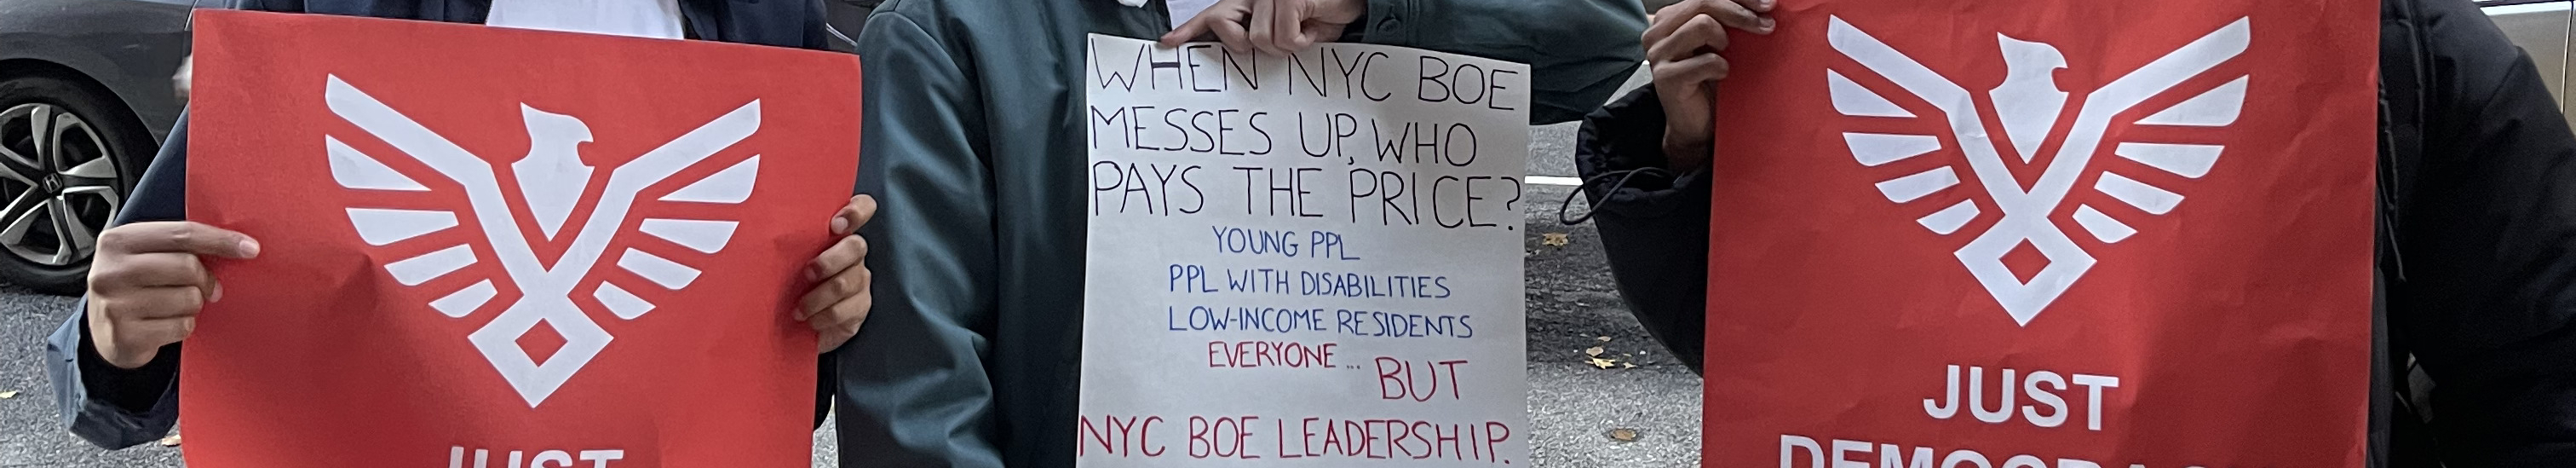 JUST
WHEN NYC BOE
MESSES UP, WHO
PAYS THE PRICE?
YOUNG PPL
PPL WITH DISABILITIES
LOW-INCOME RESIDENTS
EVERYONE... BUT
NYC BOE LEADERSHIP.
JUST